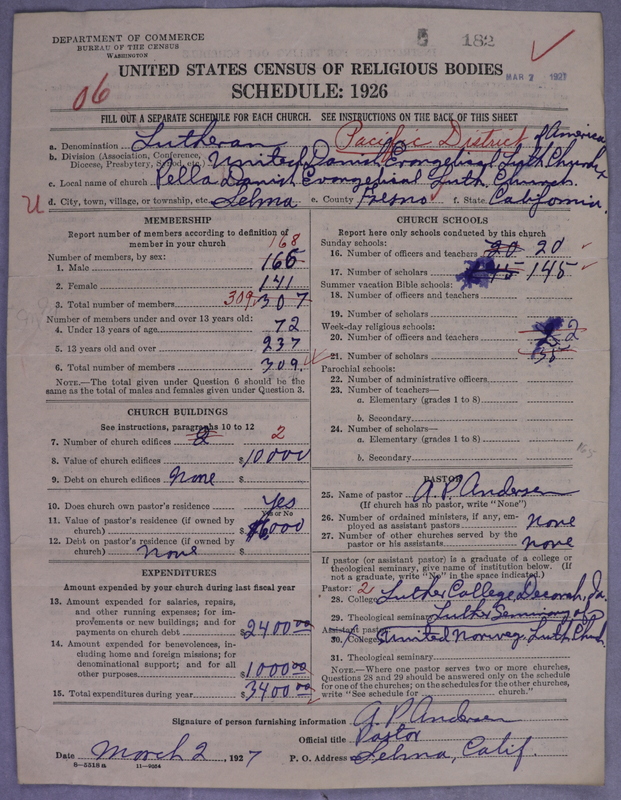 DEPARTMENT OF COMMERCE
BUREAU OF THE CENSUS
WASHINGTON
182
MAR 7 1927
UNITED STATES CENSUS OF RELIGIOUS BODIES
SCHEDULE: 1926
06
FILL OUT A SEPARATE SCHEDULE FOR EACH CHURCH. SEE INSTRUCTIONS ON THE BACK OF THIS SHEET
a. Denomination Lutheran Pacific District of America
b. Division (Association, Conference, Diocese, Presbytery, Synod, etc.) United Danish Evangelical Luth. Church
c. Local name of church Pella Danish Evangelical Luth. Church.
U d. City, town, village, or township, etc. Selma e. County Fresno f. State California.
MEMBERSHIP
Report number of members according to definition of
member in your church
168
Number of members, by sex:
1. Male 166
2. Female 141
3. Total number of members 309 307
Number of members under and over 13 years old:
4. Under 13 years of age 72
5. 13 years old and over 237
6. Total number of members 309.
NOTE.—The total given under Question 6 should be the
same as the total of males and females given under Question 3.
CHURCH BUILDINGS
See instructions, paragraphs 10 to 12
7. Number of church edifices 2 2
8. Value of church edifices $10000
9. Debt on church edifices None $
10. Does church own pastor's residence Yes
Yes or No
11. Value of pastor's residence (if owned by
church) $6000
12. Debt on pastor's residence (if owned by
church) None $
EXPENDITURES
Amount expended by your church during last fiscal year
13. Amount expended for salaries, repairs,
and other running expenses; for im-
provements or new buildings; and for
payments on church debt $2400 00
14. Amount expended for benevolences, in-
cluding home and foreign missions; for
denominational support; and for all
other purposes $1000 00
15. Total expenditures during year $3400 00
CHURCH SCHOOLS
Report here only schools conducted by this church
Sunday schools:
16. Number of officers and teachers 20 20
17. Number of scholars 145 145
Summer vacation Bible schools:
18. Number of officers and teachers
19. Number of scholars
Week-day religious schools:
20. Number of officers and teachers 2
21. Number of scholars 35
Parochial schools:
22. Number of administrative officers
23. Number of teachers—
a. Elementary (grades 1 to 8)
b. Secondary
24. Number of scholars—
a. Elementary (grades 1 to 8)
b. Secondary
PASTOR
25. Name of pastor A. P. Andersen
(If church has no pastor, write "None")
26. Number of ordained ministers, if any, em-
ployed as assistant pastors None
27. Number of other churches served by the
pastor or his assistants None
If pastor (or assistant pastor) is a graduate of a college or
theological seminary, give name of institution below. (If
not a graduate, write "No" in the space indicated.)
Pastor: 2
28. College Luther College Decorah, Ia.
29. Theological seminary Luther Seminary of
Assistant pastor:
30. College United Norweg. Luth. Church.
31. Theological seminary
NOTE.—Where one pastor serves two or more churches,
Questions 28 and 29 should be answered only on the schedule
for one of the churches; on the schedules for the other churches,
write "See schedule for church."
Signature of person furnishing information A. P. Andersen
Official title Pastor
Date March 2, 1927 P. O. Address Selma, Calif.
8-5318a 11-9084